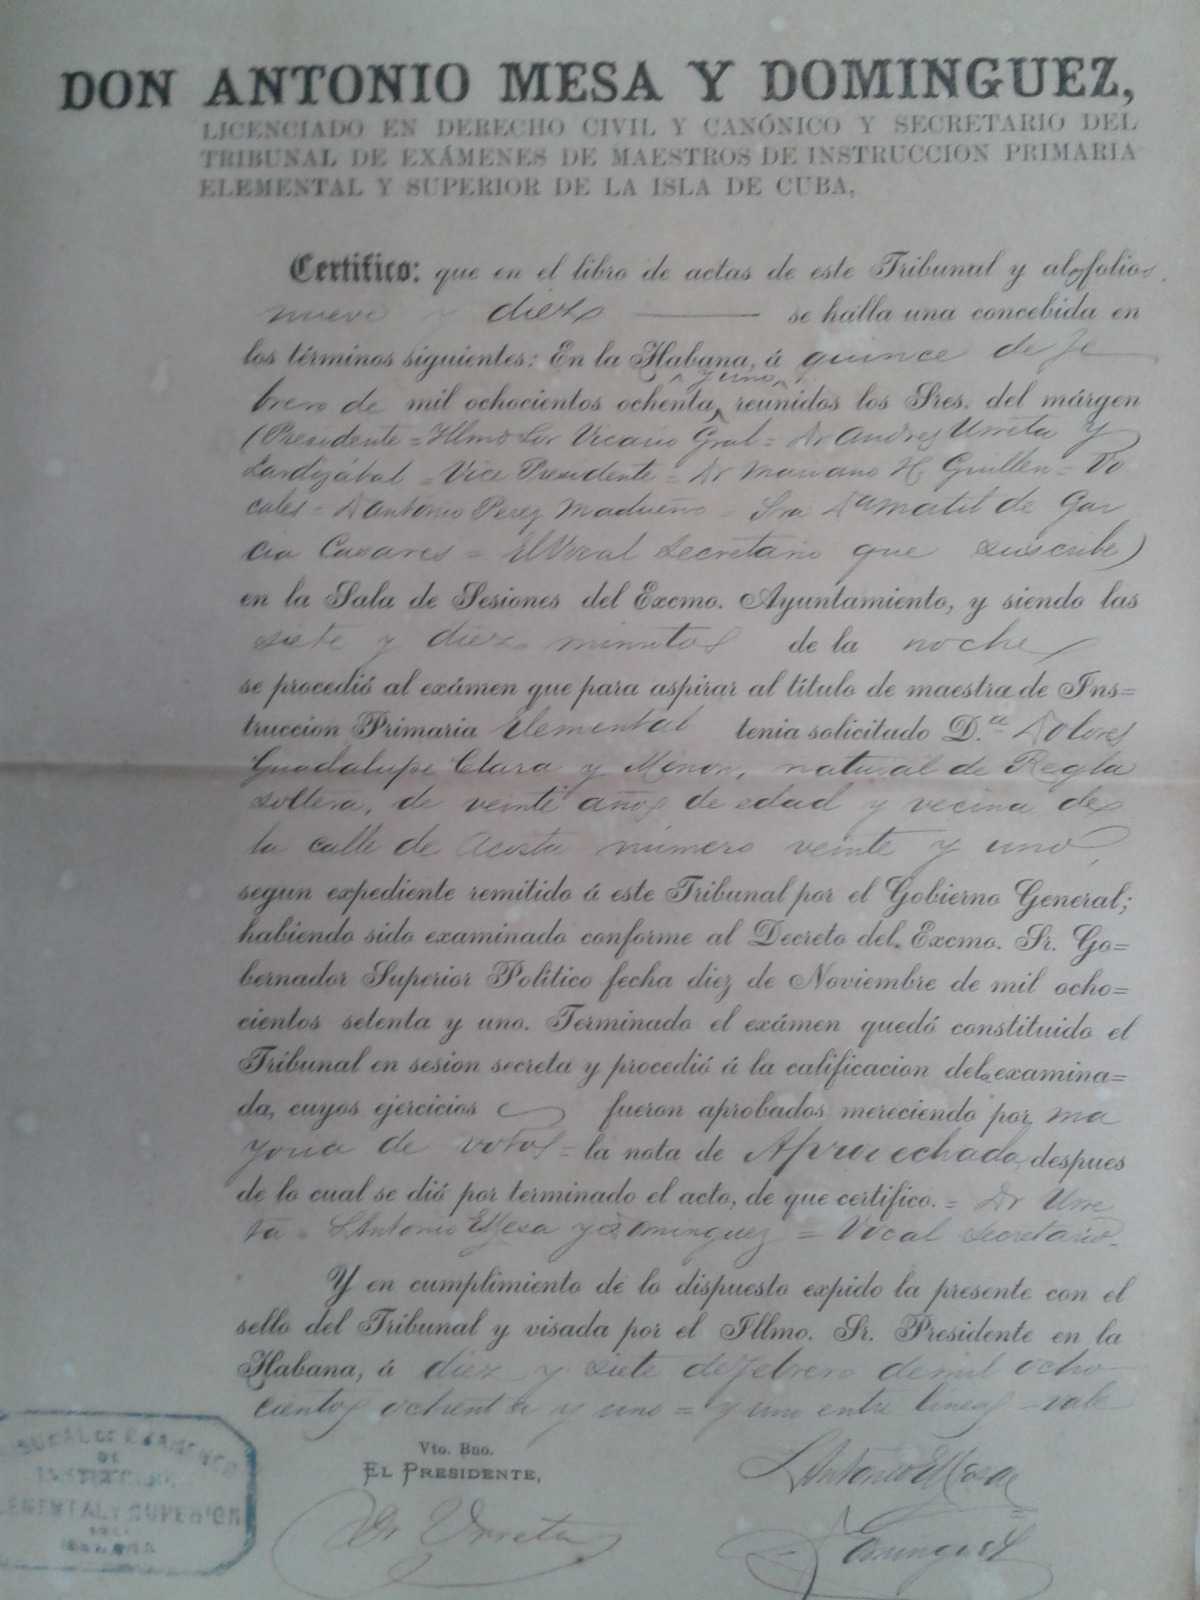 DON ANTONIO MESA Y DOMINGUEZ,
LICENCIADO EN DERECHO CIVIL Y CANÓNICO Y SECRETARIO DEL
TRIBUNAL DE EXÁMENES DE MAESTROS DE INSTRUCCION PRIMARIA
ELEMENTAL Y SUPERIOR DE LA ISLA DE CUBA,
Certifico: que en el libro de actas de este Tribunal y al os folios
nueve y diez se halla una concebida en
los términos siguientes: En la Habana, á quince de Fe
y uno
brero de mil ochocientos ochenta, reunidos los Sres. del márgen
(Presidente = Illmo Sor Vicario Gral = Dr Andres Urreta y
Lardizábal = Vice Presidente = Dr Mariano H Guillen = Vo
cales = D Antonio Perez Madueño = Sra Da Matilde Gar
cia Casares = El Vocal Secretario que suscribe)
en la Sala de Sesiones del Excmo. Ayuntamiento, y siendo las
siete y diez minutos de la noche
se procedió al exámen que para aspirar al título de maestra de Ins=
truccion Primaria Elemental tenia solicitado D.ª Dolores
Guadalupe Clara y Miñon, natural de Regla
soltera, de veinte años de edad y vecina de
la calle de Acosta número veinte y uno,
segun expediente remitido á este Tribunal por el Gobierno General;
habiendo sido examinado conforme al Decreto del Excmo. Sr. Go=
bernador Superior Político fecha diez de Noviembre de mil ocho=
cientos setenta y uno. Terminado el exámen quedó constituido el
Tribunal en sesion secreta y procedió á la calificacion de la examina=
da, cuyos ejercicios fueron aprobados mereciendo por ma
yoria de votos = la nota de Aprovechada, despues
de lo cual se dió por terminado el acto, de que certifico. = Dr Urre
ta = L Antonio Mesa y Dominguez = Vocal Secretario.
Y en cumplimiento de lo dispuesto expido la presente con el
sello del Tribunal y visada por el Illmo. Sr. Presidente en la
Habana, á diez y siete de Febrero de mil ocho
cientos ochenta y uno = y uno entre lineas = vale
Vto. Bno.
EL PRESIDENTE,
L Antonio Mesa
Dr Urreta
Dominguez
TRIBUNAL DE EXAMENES
DE
INSTRUCCION
ELEMENTAL Y SUPERIOR
HABANA